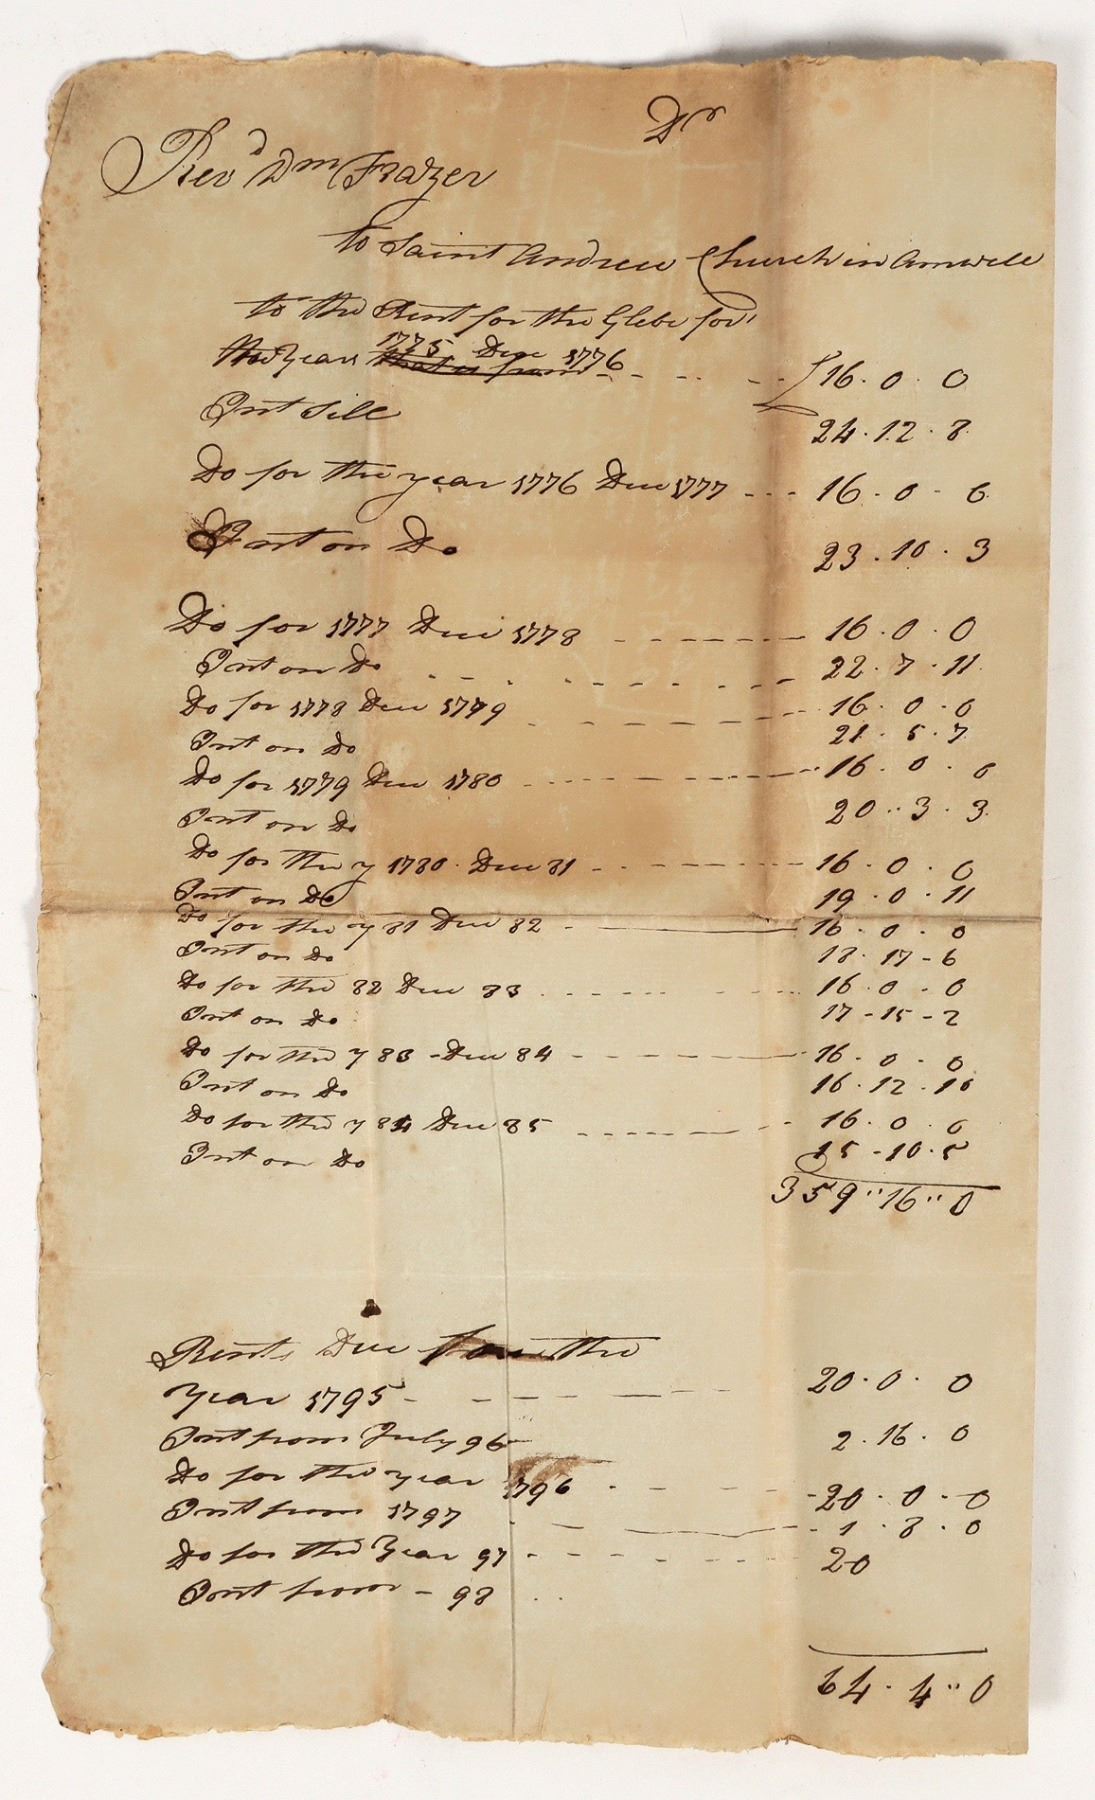 Dr
Revd Wm Frazer
to Saint Andrew Church in Amwell
to the Rent for the Glebe for
the Year 1775 Due 1776 - - - - £16 . 0 . 0
Int till 24 . 12 . 8
Do for the year 1776 Due 1777 - - - 16 . 0 - 0
Int on Do 23 . 10 . 3
Do for 1777 Due 1778 - - - 16 . 0 . 0
Int on Do - - - 22 . 7 . 11
Do for 1778 Due 1779 - - - 16 . 0 . 0
Int on Do 21 . 5 . 7
Do for 1779 Due 1780 - - - 16 . 0 . 0
Int on Do 20 . 3 . 3
Do for the y 1780 . Due 81 - - - 16 . 0 . 0
Int on Do 19 . 0 . 11
Do for the y 81 Due 82 - - 16 . 0 . 0
Int on Do 18 . 17 - 6
Do for the 82 Due 83 - - - 16 . 0 . 0
Int on Do 17 - 15 - 2
Do for the y 83 - Due 84 - - - 16 . 0 . 0
Int on Do 16 . 12 . 10
Do for the y 84 Due 85 - - - 16 . 0 . 0
Int on Do 15 - 10 . 5
359 " 16 " 0
Rents Due the
Year 1795 - - - 20 . 0 . 0
Int from July 96 2 . 16 . 0
Do for the year 1796 - - - 20 . 0 . 0
Int from 1797 - - - 1 . 8 . 0
Do for the Year 97 - - - 20
Int from - 98 . .
64 . 4 " 0